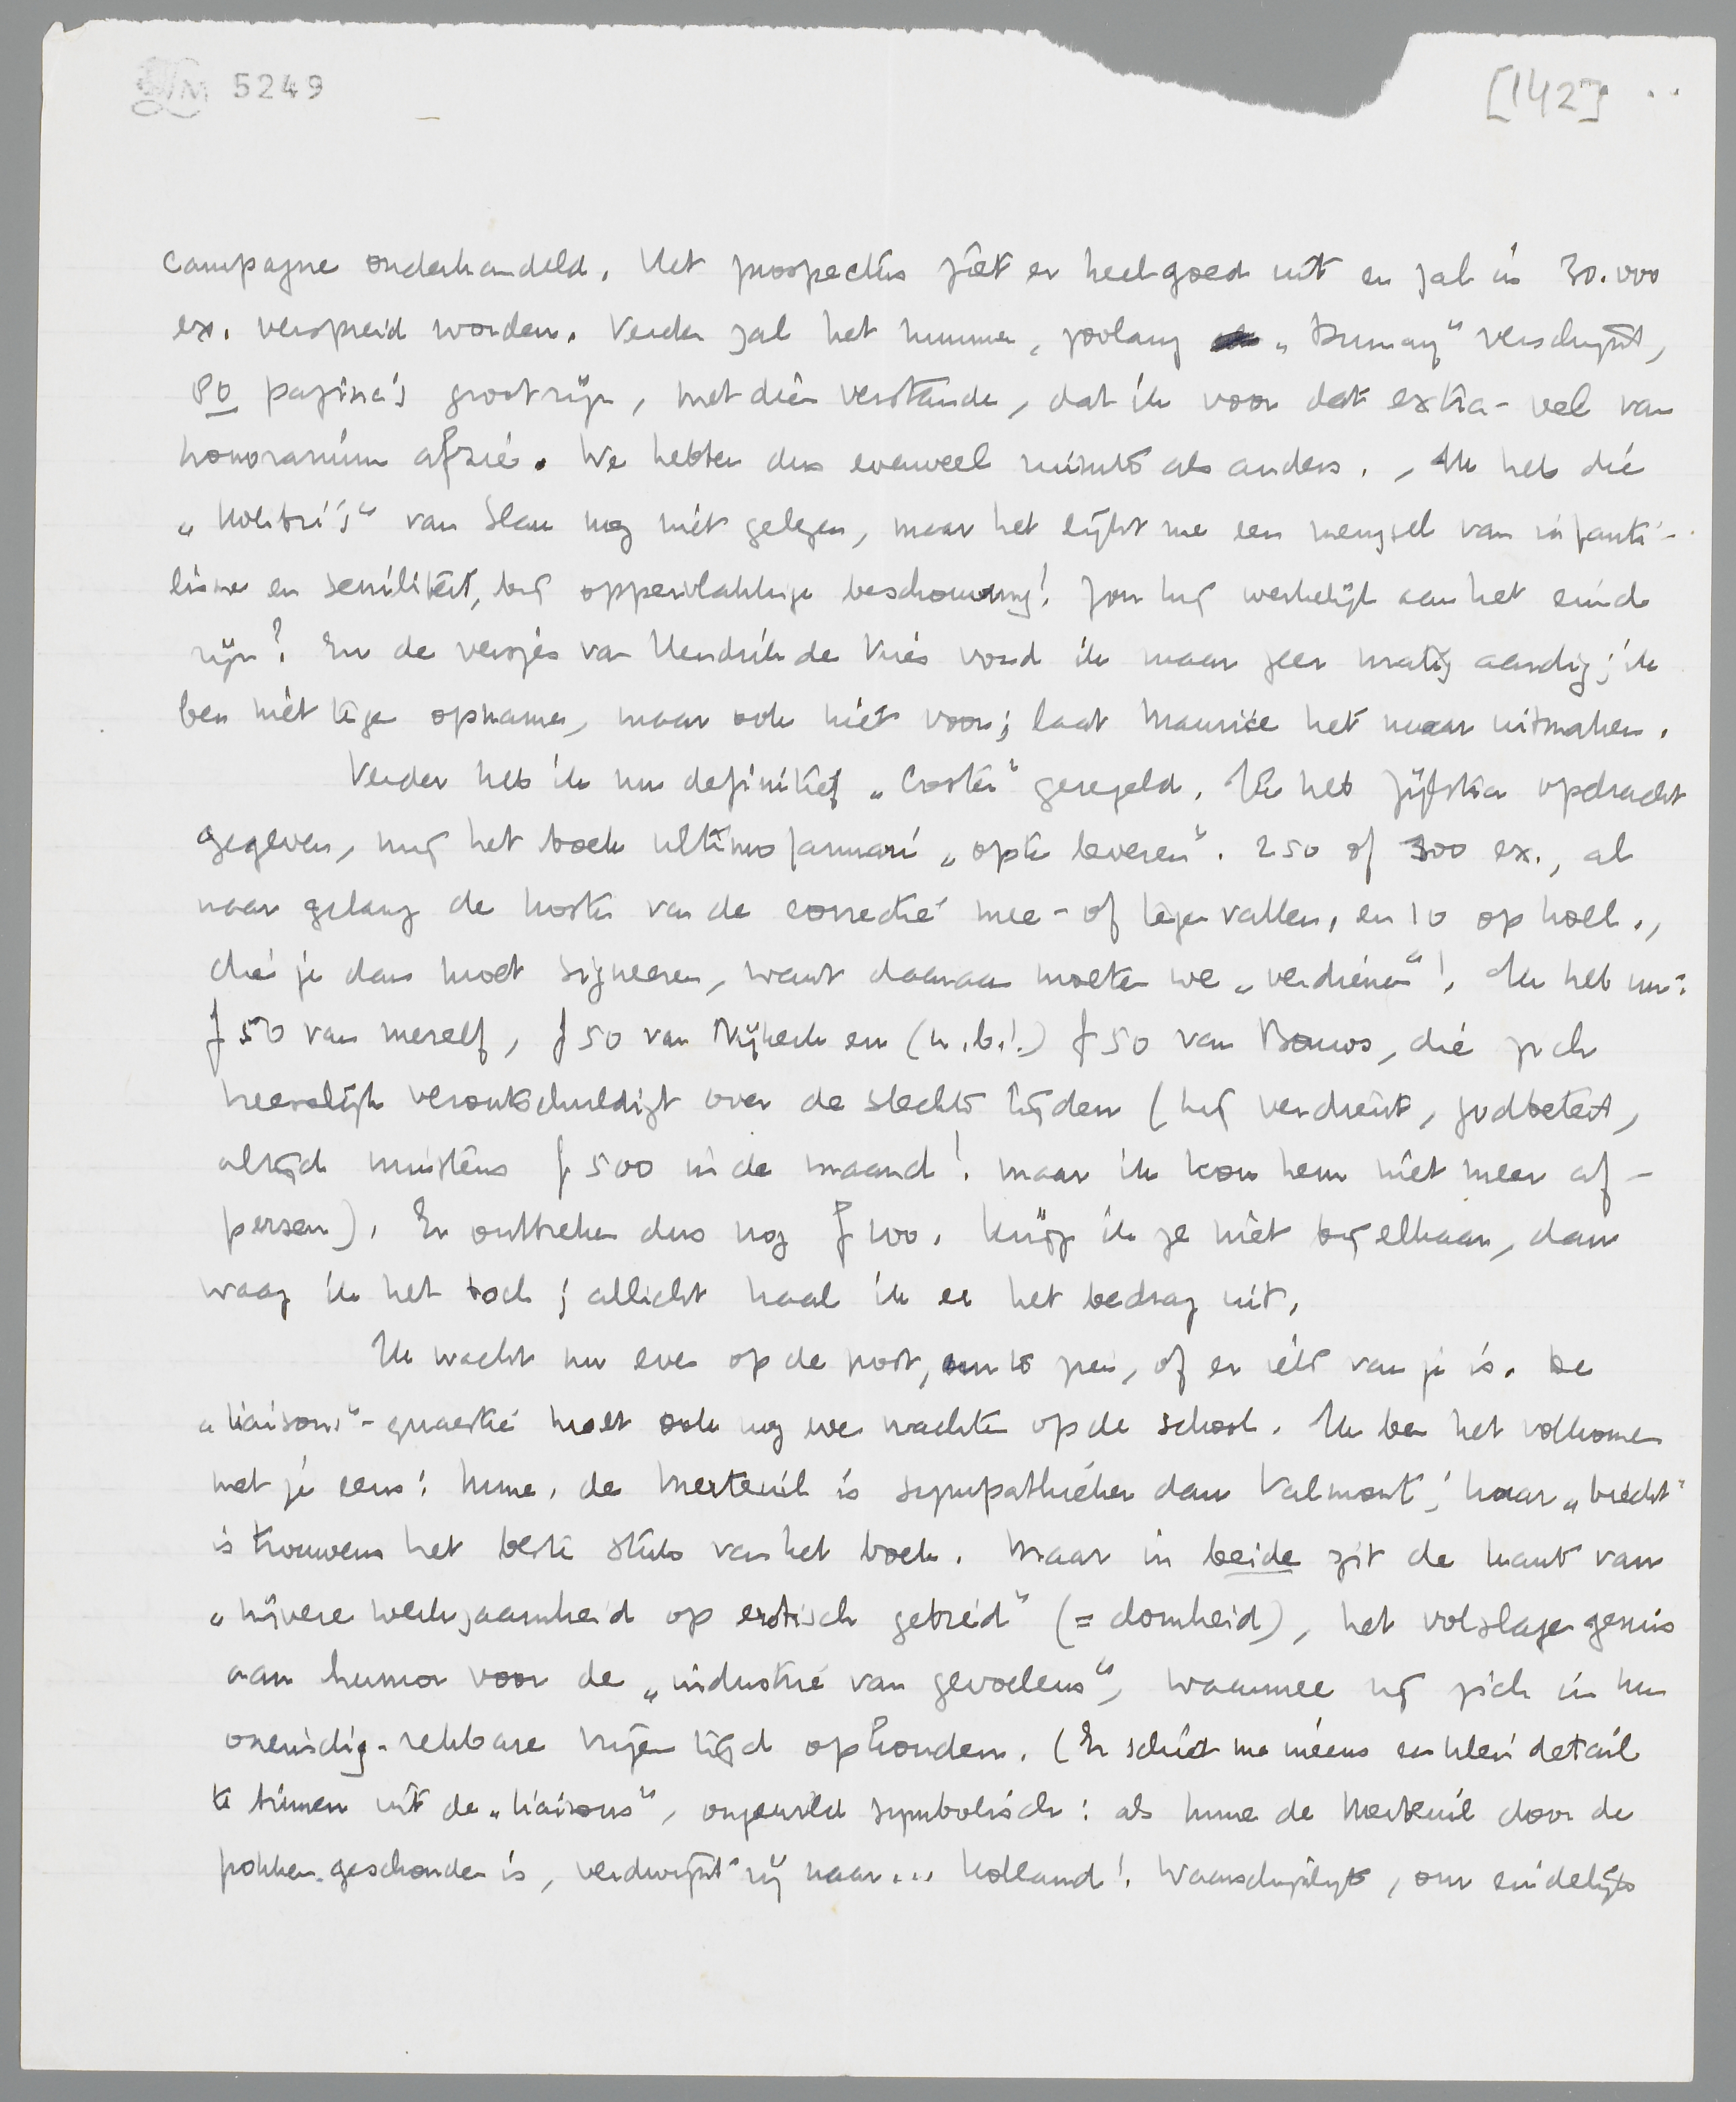 LM 5249
[142]
campagne onderhandeld. Het prospectus ziet er heel goed uit en zal in 30.000
ex. verspreid worden. Verder zal het nummer, zoolang „Dumay" verschijnt,
80 pagina's groot zijn, met dien verstande, dat ik voor dat extra-vel van
honorarium afzie. We hebben dus evenveel ruimte als anders. Ik heb die
„Kolibri's" van Slau nog niet gelezen, maar het lijkt me een mengsel van infanti-
lisme en seniliteit, bij oppervlakkige beschouwing! Zou hij werkelijk aan het eind
zijn? En de versjes van Hendrik de Vries vond ik maar zeer matig aardig; ik
ben niet tegen opname, maar ook niet voor; laat Maurice het maar uitmaken.
Verder heb ik nu definitief „Coster" geregeld. Ik heb Zijlstra opdracht
gegeven, mij het boek ultimo Januari „op te leveren". 250 of 300 ex., al
naar gelang de kosten van de correctie mee- of tegenvallen, en 10 op holl.,
die je dan moet signeeren, want daaraan moeten we „verdienen"! Ik heb nu:
f 50 van mezelf, f 50 van Nijkerk en (n.b.!) f 50 van Bouws, die zich
heerlijk verontschuldigt over de slechte tijden (hij verdient, godbetert,
altijd minstens f 500 in de maand! maar ik kon hem niet meer af-
persen). Er ontbreken dus nog f 100. Krijg ik ze niet bij elkaar, dan
waag ik het toch; allicht haal ik er het bedrag uit.
Ik wacht nu even op de post, om te zien, of er iets van je is. De
„liaisons"-quaestie moet ook nog even wachten op de school. Ik ben het volkomen
met je eens: Mme. de Merteuil is sympathieker dan Valmont; haar „biecht"
is trouwens het beste stuk van het boek. Maar in beide zit de kant van
„nijvere werkzaamheid op erotisch gebied" (= domheid), het volslagen gemis
aan humor voor de „industrie van gevoelens", waarmee zij zich in hun
oneindig-rekbare vrijen tijd ophouden. (Er schiet me ineens een klein detail
te binnen uit de „liaisons", ongewild symbolisch: als Mme de Merteuil door de
pokken geschonden is, verdwijnt zij naar... Holland! Waarschijnlijk, om eindelijk